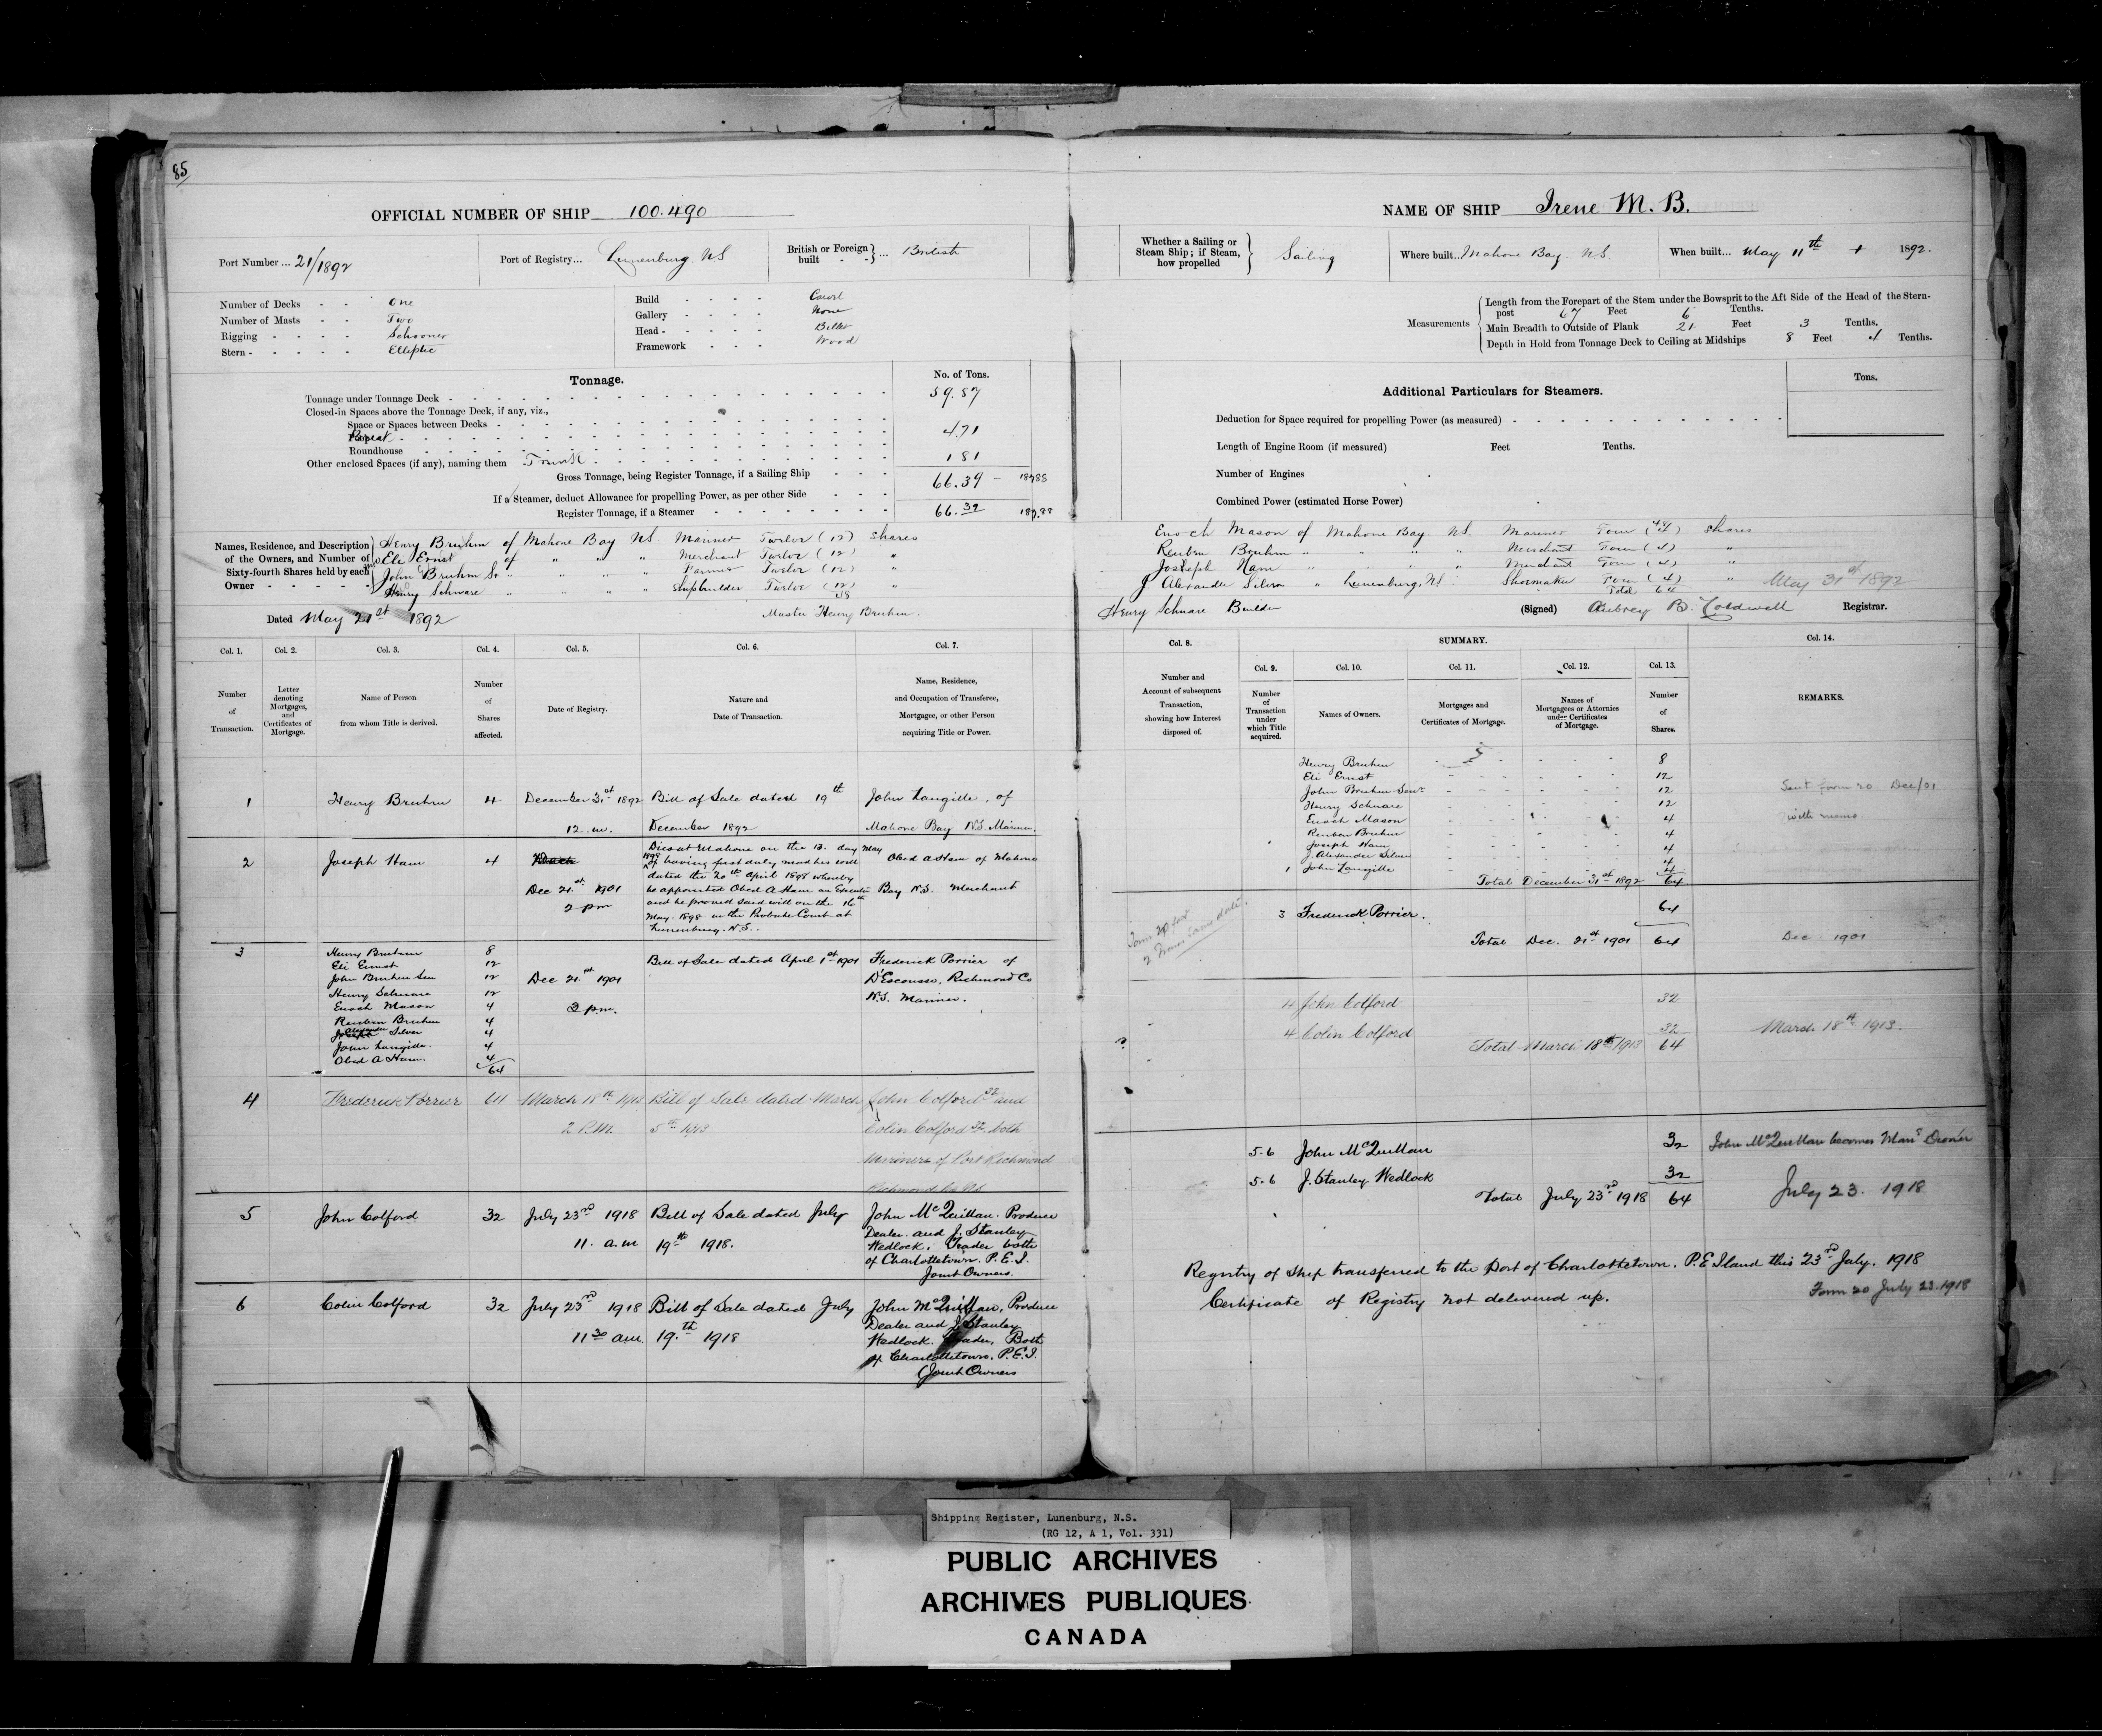 85
OFFICIAL NUMBER OF SHIP 100.490
Port Number ... 21/1892
Port of Registry... Lunenburg NS
British or Foreign built - - } ... British
Number of Decks - - One
Number of Masts - - Two
Rigging - - - - Schooner
Stern - - - - - Elliptic
Build - - - - Carvel
Gallery - - - - None
Head - - - - Billet
Framework - - - Wood
Tonnage.
No. of Tons.
Tonnage under Tonnage Deck - 59.87
Closed-in Spaces above the Tonnage Deck, if any, viz.,
Space or Spaces between Decks -
4.71
Roundhouse -
Other enclosed Spaces (if any), naming them Trunk 1 81
Gross Tonnage, being Register Tonnage, if a Sailing Ship - - - 66.39
If a Steamer, deduct Allowance for propelling Power, as per other Side - - -
Register Tonnage, if a Steamer - 66.39
Names, Residence, and Description of the Owners, and Number of Sixty-fourth Shares held by each Owner - - - - -
Henry Bruhm of Mahone Bay NS Mariner Twelve (12) Shares
Eli Ernst of " " " Merchant Twelve (12) "
John Bruhm Sr " " " " Farmer Twelve (12) "
Henry Schnare " " " " Shipbuilder Twelve (12) "
48
Dated May 21st 1892
Master Henry Bruhm.
Col. 1.
Col. 2.
Col. 3.
Col. 4.
Col. 5.
Col. 6.
Col. 7.
Number of Transaction.
Letter denoting Mortgages, and Certificates of Mortgage.
Name of Person from whom Title is derived.
Number of Shares affected.
Date of Registry.
Nature and Date of Transaction.
Name, Residence, and Occupation of Transferee, Mortgagee, or other Person acquiring Title or Power.
1 Henry Bruhm 4 December 31st 1892 Bill of Sale dated 19th John Langille, of
12. m. December 1892 Mahone Bay N.S. Mariner.
2 Joseph Ham 4
Dec 21st 1901
2 pm
Died at Mahone on the 13. day May
1898 having first duly made his will
dated the 20th April 1898 whereby
he appointed Obed A Ham an Executor
and he proved said will on the 16th
May. 1898 in the Probate Court at
Lunenburg. N.S..
Obed A Ham of Mahone
Bay N.S. Merchant
3 Henry Bruhm 8
Eli Ernst 12
John Bruhm Sen 12
Henry Schnare 12
Enoch Mason 4
Reuben Bruhm 4
Alexander Silver 4
John Langille. 4
Obed A Ham. 4
64
Dec 21st 1901
3 p.m.
Bill of Sale dated April 1st 1901
Frederick Porrier of
D'Escousse, Richmond Co
N.S. Mariner.
4 Frederick Porrier 64 March 18th 1913 Bill of Sale dated March John Colford 32 and
2 P.M. 5th 1913 Colin Colford 32. both
Mariners of Port Richmond
Richmond Co NS
5 John Colford 32 July 23rd 1918 Bill of Sale dated July
11. a.m 19th 1918.
John McQuillan. Produce
Dealer. and J. Stanley
Wedlock. Trader both
of Charlottetown. P.E.I.
Joint Owners.
6 Colin Colford 32 July 23rd 1918 Bill of Sale dated July
11 30 am. 19.th 1918
John McQuillan, Produce
Dealer and J. Stanley
Wedlock. Trader, Both
of Charlottetown. P.E.I.
(Joint Owners
NAME OF SHIP Irene M. B.
Whether a Sailing or Steam Ship; if Steam, how propelled } Sailing
Where built... Mahone Bay. NS.
When built... May 11th 1892.
Measurements
Length from the Forepart of the Stem under the Bowsprit to the Aft Side of the Head of the Stern-
post 67 Feet 6 Tenths.
Main Breadth to Outside of Plank 21 Feet 3 Tenths,
Depth in Hold from Tonnage Deck to Ceiling at Midships 8 Feet 4 Tenths.
Additional Particulars for Steamers.
Tons.
Deduction for Space required for propelling Power (as measured) -
Length of Engine Room (if measured) Feet Tenths.
Number of Engines
Combined Power (estimated Horse Power)
Enoch Mason of Mahone Bay. NS. Mariner Four (4) Shares
Reuben Bruhm " " " " Merchant Four (4) "
Joseph Ham " " " " Merchant Four (4) "
J. Alexander Silver " Lunenburg, NS. Shoemaker Four (4) "
Total 64
May 31st 1892
Henry Schnare Builder
(Signed) Aubrey B. Caldwell Registrar.
Col. 8.
SUMMARY.
Col. 9.
Col. 10.
Col. 11.
Col. 12.
Col. 13.
Col. 14.
Number and Account of subsequent Transaction, showing how Interest disposed of.
Number of Transaction under which Title acquired.
Names of Owners.
Mortgages and Certificates of Mortgage.
Names of Mortgagees or Attornies under Certificates of Mortgage.
Number of Shares.
REMARKS.
Henry Bruhm 8
Eli Ernst 12
John Bruhm Senr 12
Henry Schnare 12
Enoch Mason 4
Reuben Bruhm 4
Joseph Ham 4
J. Alexander Silver 4
1 John Langille 4
Total December 31st 1892 64
Sent form 20 Dec/01
with memo.
3 Frederick Porrier. 64
Total Dec. 21st 1901 64
Dec 1901
4 John Colford 32
4 Colin Colford 32
Total March 18th 1913 64
March 18th 1913.
?
5-6 John McQuillan 32
5-6 J. Stanley Wedlock 32
Total July 23rd 1918 64
John McQuillan becomes Man'g Owner
July 23. 1918
Registry of Ship transferred to the Port of Charlottetown. P.E Island this 23rd July. 1918
Certificate of Registry not delivered up.
Form 20 July 23.1918
Shipping Register, Lunenburg, N.S.
(RG 12, A 1, Vol. 331)
PUBLIC ARCHIVES
ARCHIVES PUBLIQUES
CANADA